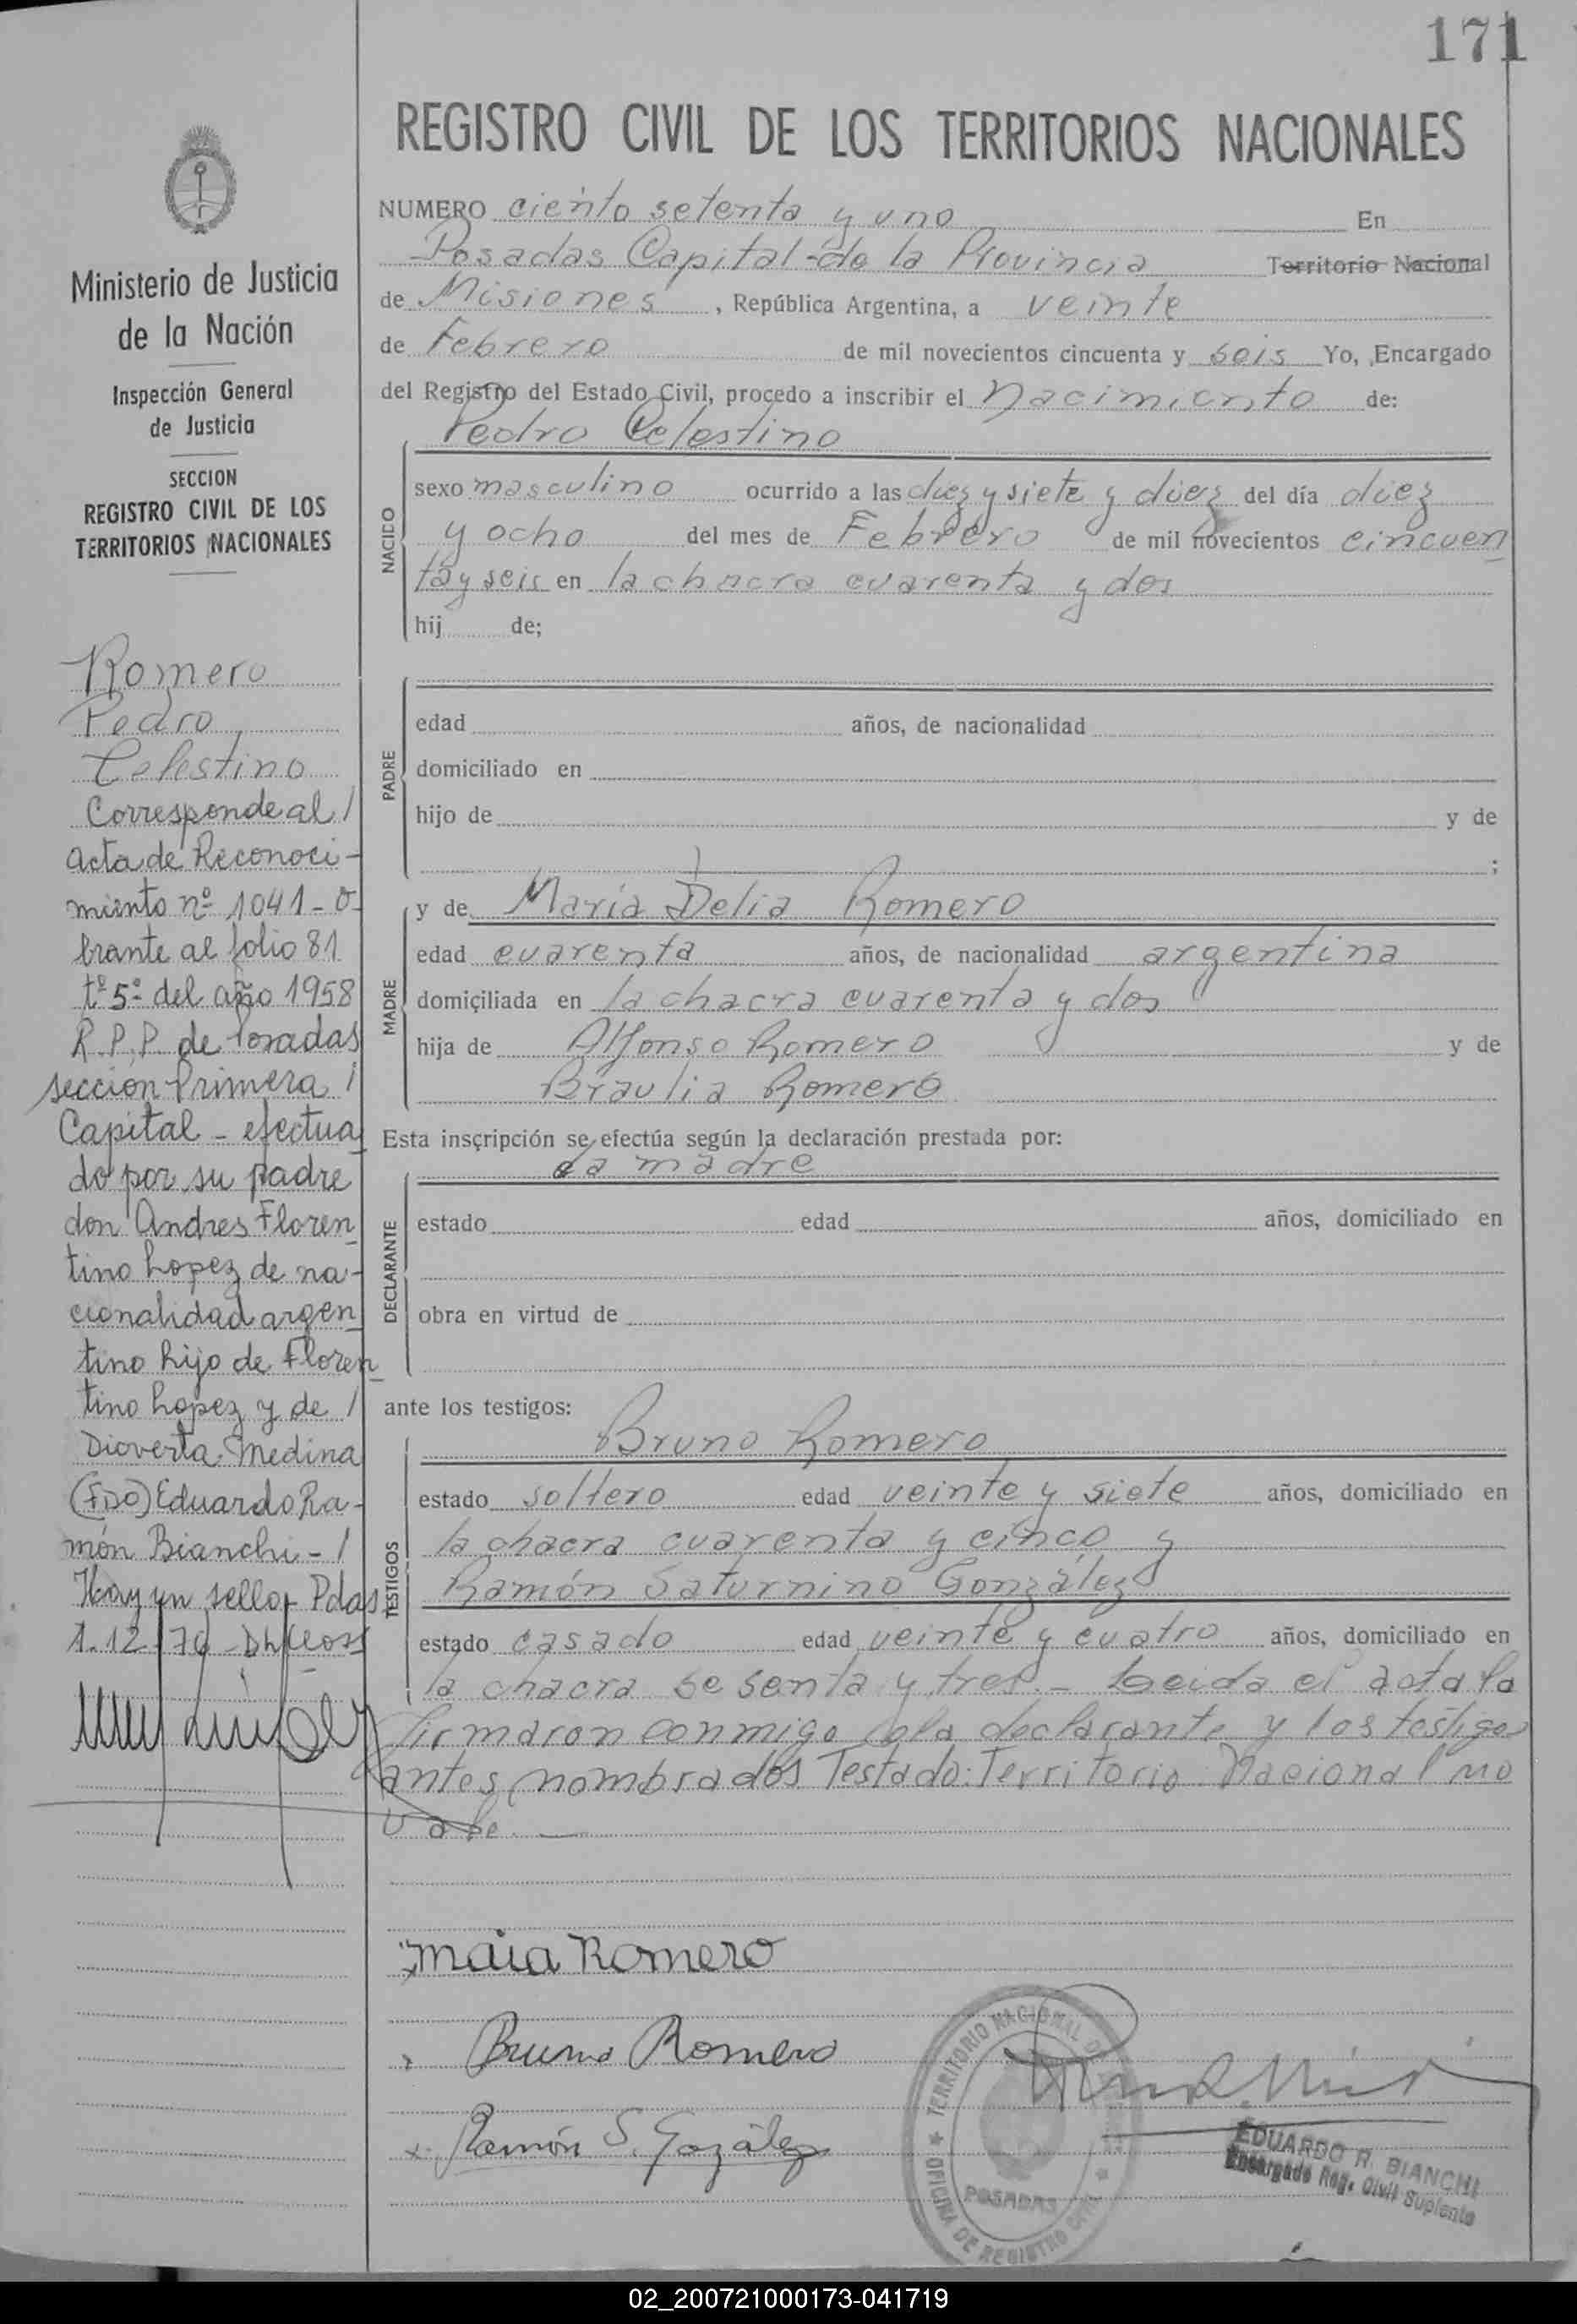 171
REGISTRO CIVIL DE LOS TERRITORIOS NACIONALES
NUMERO ciento setenta y uno En
Posadas Capital de la Provincia Territorio Nacional
de Misiones, República Argentina, a veinte
de Febrero de mil novecientos cincuenta y seis Yo, Encargado
del Registro del Estado Civil, procedo a inscribir el Nacimiento de:
Pedro Celestino
NACIDO
sexo masculino ocurrido a las diez y siete y diez del día diez
y ocho del mes de Febrero de mil novecientos cincuen
ta y seis en la chacra cuarenta y dos
hij de;
PADRE
edad años, de nacionalidad
domiciliado en
hijo de y de
;
MADRE
y de María Delia Romero
edad cuarenta años, de nacionalidad argentina
domiciliada en la chacra cuarenta y dos
hija de Alfonso Romero y de
Braulia Romero
Esta inscripción se efectúa según la declaración prestada por:
la madre
DECLARANTE
estado edad años, domiciliado en
obra en virtud de
ante los testigos:
TESTIGOS
Bruno Romero
estado soltero edad veinte y siete años, domiciliado en
la chacra cuarenta y cinco y
Ramón Saturnino González
estado casado edad veinte y cuatro años, domiciliado en
la chacra sesenta y tres.- Leida el acta la
firmaron conmigo la declarante y los testigos
antes nombrados Testado: Territorio Nacional no
vale.—
Maia Romero
Bruno Romero
Ramón S. Gozález
TERRITORIO NACIONAL DE
OFICINA DE REGISTRO CIVIL
POSADAS
EDUARDO R. BIANCHI
Encargado Reg. Civil Suplente
Ministerio de Justicia
de la Nación
Inspección General
de Justicia
SECCION
REGISTRO CIVIL DE LOS
TERRITORIOS NACIONALES
Romero
Pedro
Celestino
Corresponde al /
acta de Reconoci-
miento nº 1041 - o-
brante al folio 81
tº 5º del año 1958
R.P.P. de Posadas
sección Primera /
Capital - efectua
do por su padre
don Andres Floren
tino Lopez de na-
cionalidad argen
tino hijo de Floren
tino Lopez y de /
Dioverta Medina
(FDO) Eduardo Ra-
món Bianchi - /
Hay un sello - Pdas
1.12-76
02_200721000173-041719